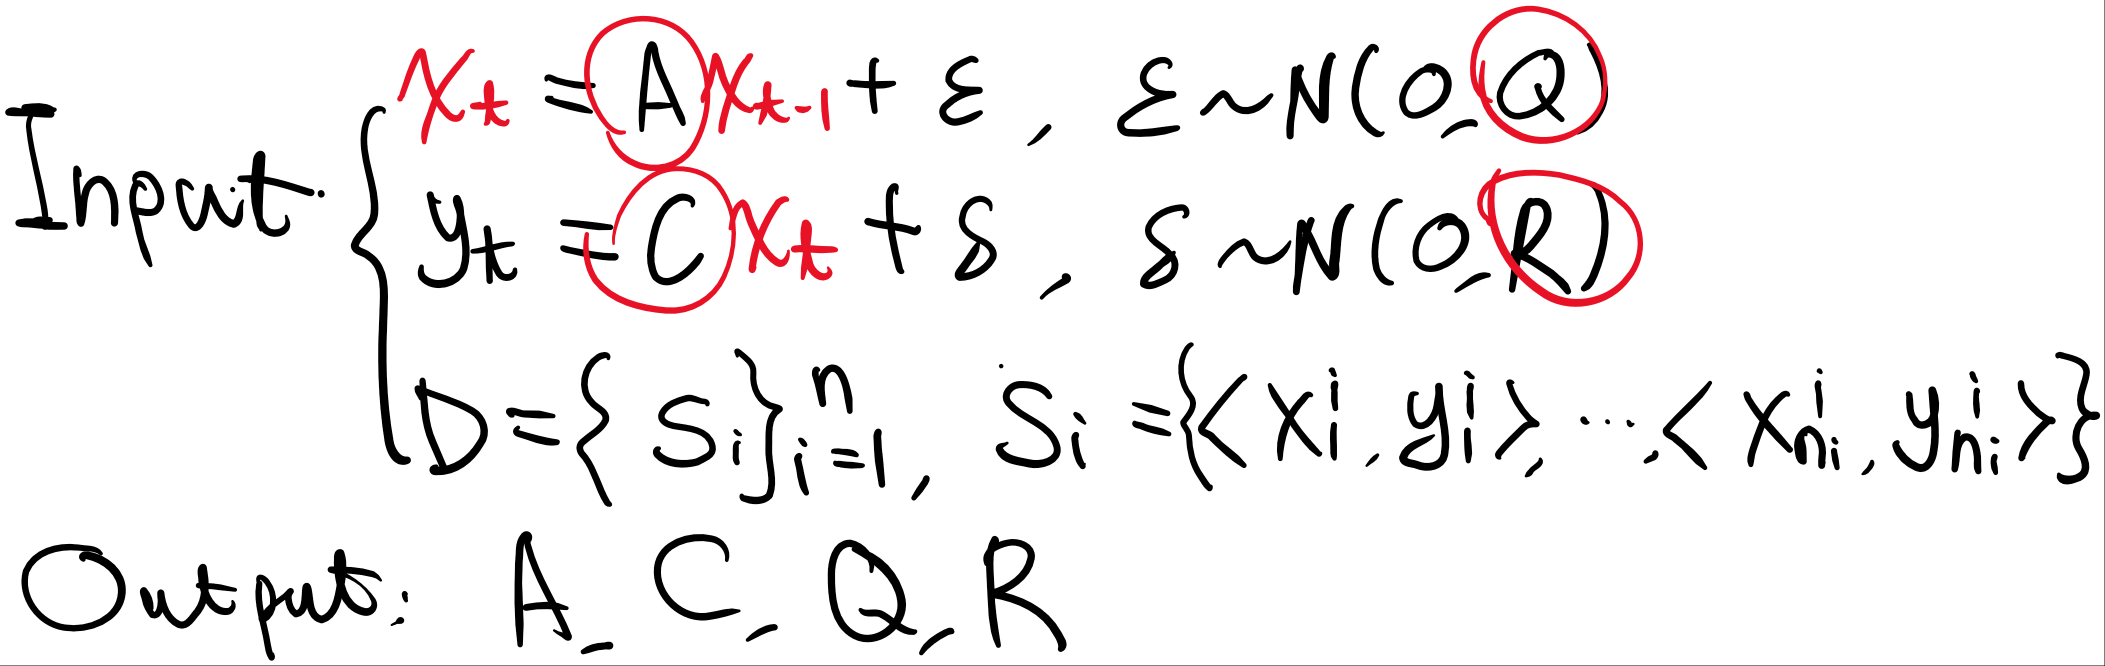 Input: { x_t = A x_{t-1} + ε, ε ~ N(0, Q)
y_t = C x_t + δ, δ ~ N(0, R)
D = { S_i }_{i=1}^n, S_i = {< x_1^i, y_1^i >, ..., < x_{n_i}^i, y_{n_i}^i >}
Output: A, C, Q, R